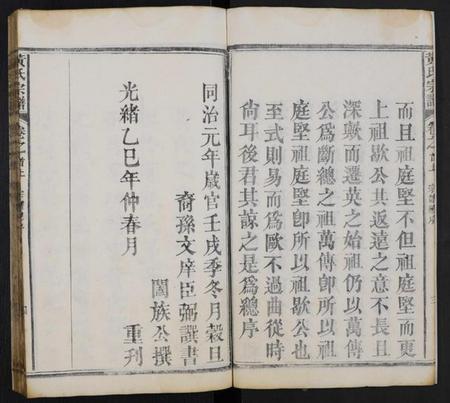 而且祖庭堅不但祖庭堅而更
上祖歇公共返遠之意不長且
深歟而遷英之始祖仍以萬傳
公爲斷總之祖萬傳卽所以祖
庭堅祖庭堅卽所以祖歇公也
至式則易而爲歐不過曲從時
尙耳後君其諒之是爲總序
同治元年歲官壬戌季冬月榖旦
裔孫文庠臣弼譔書
闔族公撰
光緒乙巳年仲春月
重刋
黃氏宗譜
卷之首上